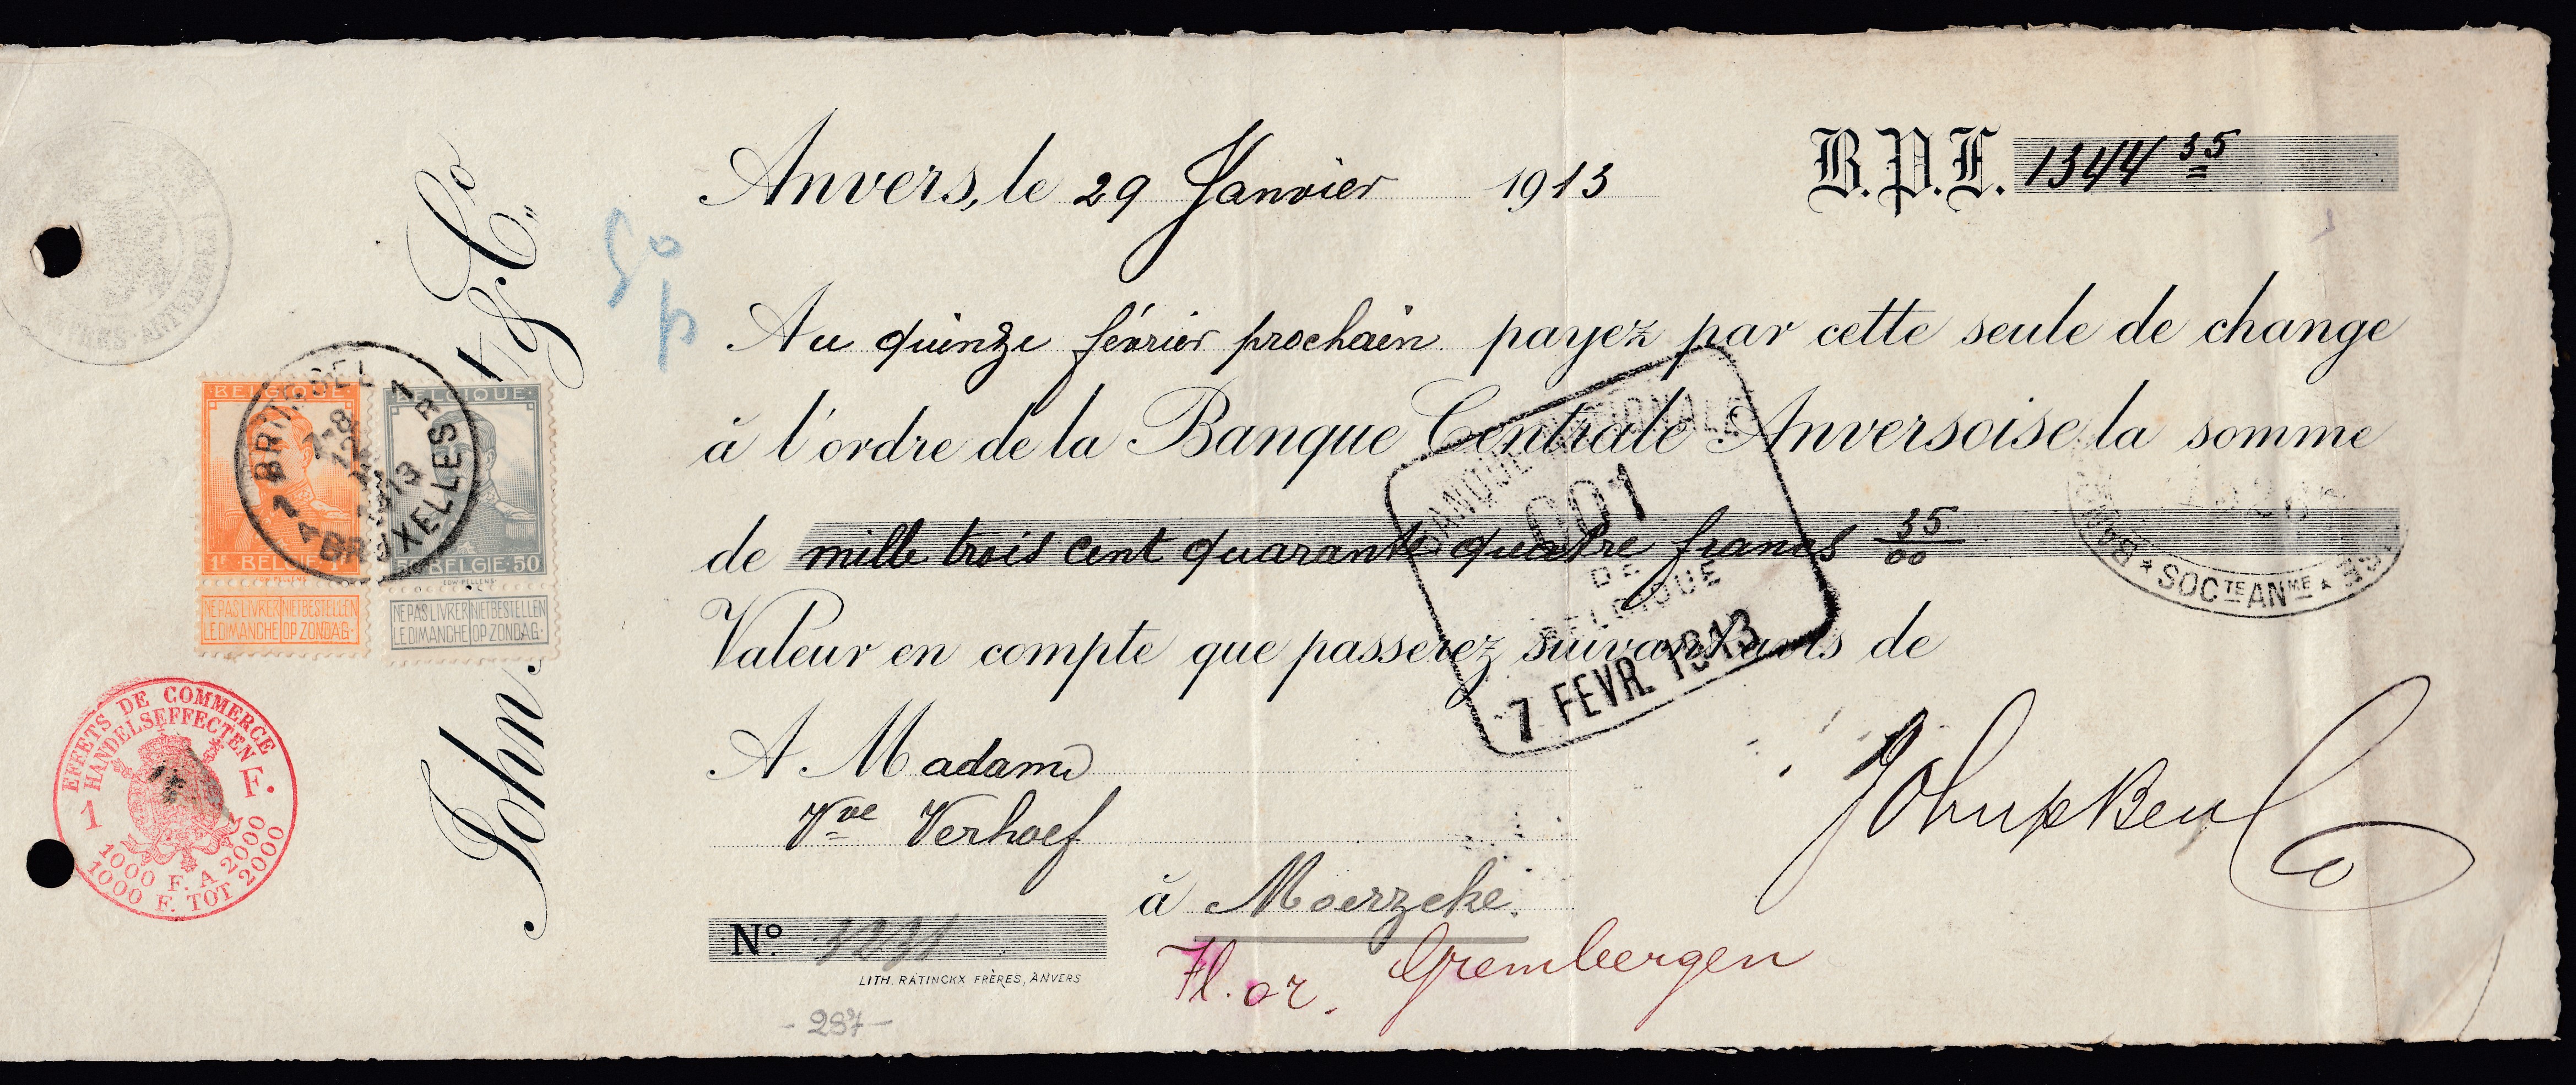 Anvers, le 29 Janvier 1913
B.P.F. 1344 35
Au quinze février prochain payez par cette seule de change
à l'ordre de la Banque Centrale Anversoise la somme
de mille trois cent quarante quatre francs 35/00
Valeur en compte que passerez suivant avis de
A Madame
Vve Verhoef
à Moerzeke.
Fl. or. Grembergen
No. 1231
LITH. RATINCKX FRÈRES, ANVERS
- 287 -
John & Co
BANQUE NATIONALE
001
DE
BELGIQUE
7 FEVR. 1913
★ SOCTE ANME ★
BRUSSEL 1
7-8
12
1913
BRUXELLES
BELGIQUE
1F BELGIE 1F
NE PAS LIVRER NIET BESTELLEN
LE DIMANCHE OP ZONDAG
BELGIQUE
50 BELGIE 50
NE PAS LIVRER NIET BESTELLEN
LE DIMANCHE OP ZONDAG
EFFETS DE COMMERCE
HANDELSEFFECTEN
1 F.
1000 F. A 2000
1000 F. TOT 2000